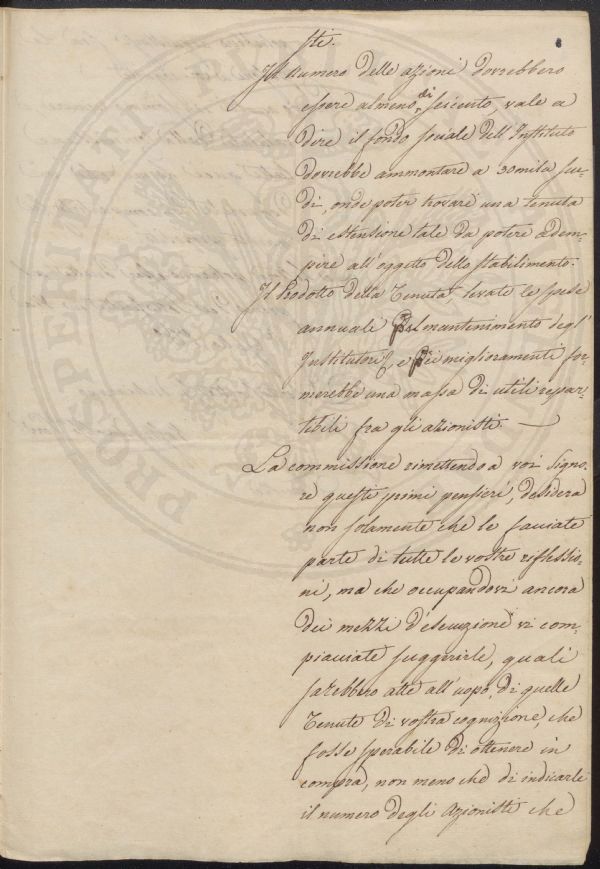 sti.
Il Numero delle azioni dovrebbero
essere almeno di seicento, vale a
dire il fondo sociale dell'Instituto
dovrebbe ammontare a 30mila scu-
di, onde poter trovare una tenuta
di estensione tale da potere adem-
pire all'oggetto dello stabilimento.
Il Prodotto della Tenuta, levate le spese
annuali pel mantenimento degl'
Institutori, e pei miglioramenti for-
merebbe una massa di utili repar-
tibili fra gli azionisti. —
La commissione rimettendo a voi Signo-
re questi primi pensieri, desidera
non solamente che le facciate
parte di tutte le vostre riflessio-
ni, ma che occupandovi ancora
dei mezzi d'esecuzione vi com-
piacciate suggerirle, quali
sarebbero atte all'uopo, di quelle
Tenute di vostra cognizione, che
fosse sperabile di ottenere in
compra, non meno che di indicarle
il numero degli Azionisti che
PROSPERITATI PUBLICAE